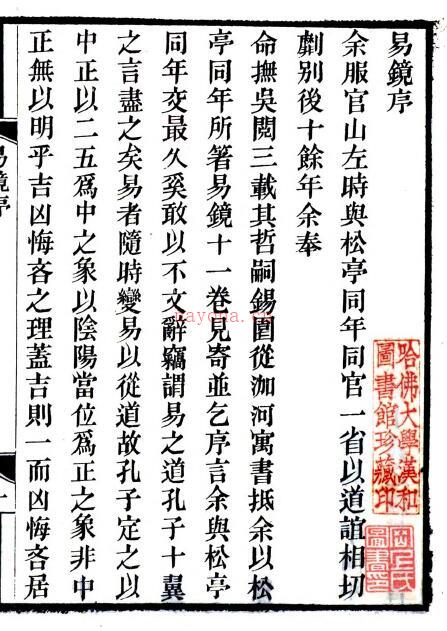 易鏡序
余服官山左時與松亭同年同官一省以道誼相切
劘別後十餘年余奉
命撫吳閱三載其哲嗣錫圍從泇河寓書抵余以松
亭同年所箸易鏡十一卷見寄並乞序言余與松亭
同年交最久奚敢以不文辭竊謂易之道孔子十翼
之言盡之矣易者隨時變易以從道故孔子定之以
中正以二五爲中之象以陰陽當位爲正之象非中
正無以明乎吉凶悔吝之理蓋吉則一而凶悔吝居
易鏡序
一
哈佛大學漢和
圖書館珍藏印